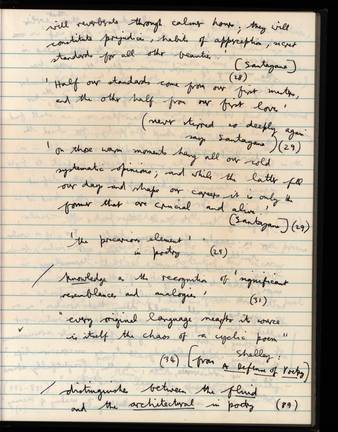 will reverberate through calmer hours; they will
constitute prejudices, habits of apperception, secret
standards for all other beauties.
[Santayana]
(28)
'Half our standards come from our first masters,
and the other half from our first love'
(never stirred so deeply again
says Santayana) (29)
'on those warm moments hang all our cold
systematic opinions; and while the latter fill
our days and shape our careers it is only the
former that are crucial and alive.'
[Santayana] (29)
'the precarious element'
in poetry (29)
/ knowledge as the recognition of 'significant
resemblances and analogies' (31)
"every original language near to its source
is itself the chaos of a cyclic poem"
(34) [from Shelley:
A Defence of Poetry]
/ distinguish between the fluid
and the architectural in poetry (89)